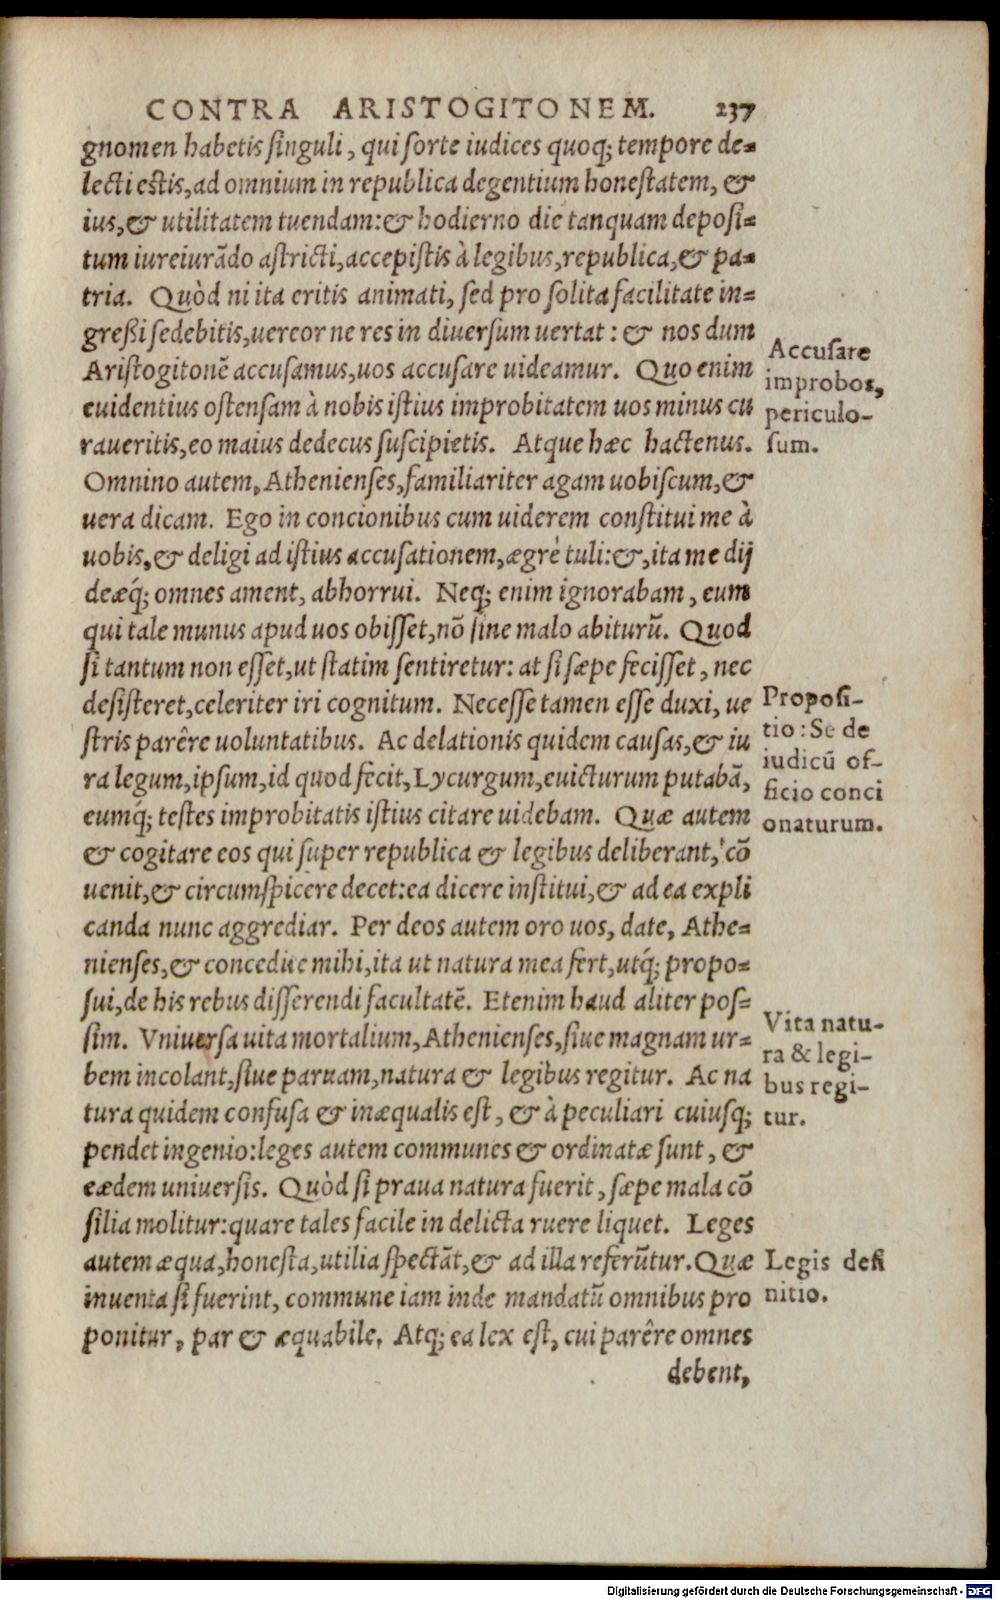 CONTRA ARISTOGITONEM. 237
gnomen habetis singuli, qui sorte iudices quoq; tempore de-
lecti estis, ad omnium in republica degentium honestatem, &
ius, & utilitatem tuendam: & hodierno die tanquam deposi-
tum iureiurādo astricti, accepistis à legibus, republica, & pa-
tria. Quòd ni ita eritis animati, sed pro solita facilitate in-
greßi sedebitis, uereor ne res in diuersum uertat: & nos dum
Aristogitonē accusamus, uos accusare uideamur. Quo enim
euidentius ostensam à nobis istius improbitatem uos minus cu
raueritis, eo maius dedecus suscipietis. Atque hæc hactenus.
Accusare
improbos,
periculo-
sum.
Omnino autem, Athenienses, familiariter agam uobiscum, &
uera dicam. Ego in concionibus cum uiderem constitui me à
uobis, & deligi ad istius accusationem, ægrè tuli: &, ita me dij
deæq́; omnes ament, abhorrui. Neq; enim ignorabam, eum
qui tale munus apud uos obisset, nō sine malo abiturū. Quod
si tantum non esset, ut statim sentiretur: at si sæpe fecisset, nec
desisteret, celeriter iri cognitum. Necesse tamen esse duxi, ue
stris parêre uoluntatibus. Ac delationis quidem causas, & iu
ra legum, ipsum, id quod fecit, Lycurgum, euicturum putabā,
eumq́; testes improbitatis istius citare uidebam. Quæ autem
Proposi-
tio: Se de
iudicū of-
ficio conci
onaturum.
& cogitare eos qui super republica & legibus deliberant, cō
uenit, & circumspicere decet: ea dicere institui, & ad ea expli
canda nunc aggrediar. Per deos autem oro uos, date, Athe-
nienses, & concedite mihi, ita ut natura mea fert, utq́; propo-
sui, de his rebus disserendi facultatē. Etenim haud aliter pos-
sim. Vniuersa uita mortalium, Athenienses, siue magnam ur-
bem incolant, siue paruam, natura & legibus regitur. Ac na
tura quidem confusa & inæqualis est, & à peculiari cuiusq;
Vita natu-
ra & legi-
bus regi-
tur.
pendet ingenio: leges autem communes & ordinatæ sunt, &
eædem uniuersis. Quòd si praua natura fuerit, sæpe mala cō
silia molitur: quare tales facile in delicta ruere liquet. Leges
autem æqua, honesta, utilia spectāt, & ad illa referūtur. Quæ
inuenta si fuerint, commune iam inde mandatū omnibus pro
Legis defi
nitio.
ponitur, par & æquabile. Atq; ea lex est, cui parêre omnes
debent,
Digitalisierung gefördert durch die Deutsche Forschungsgemeinschaft - DFG